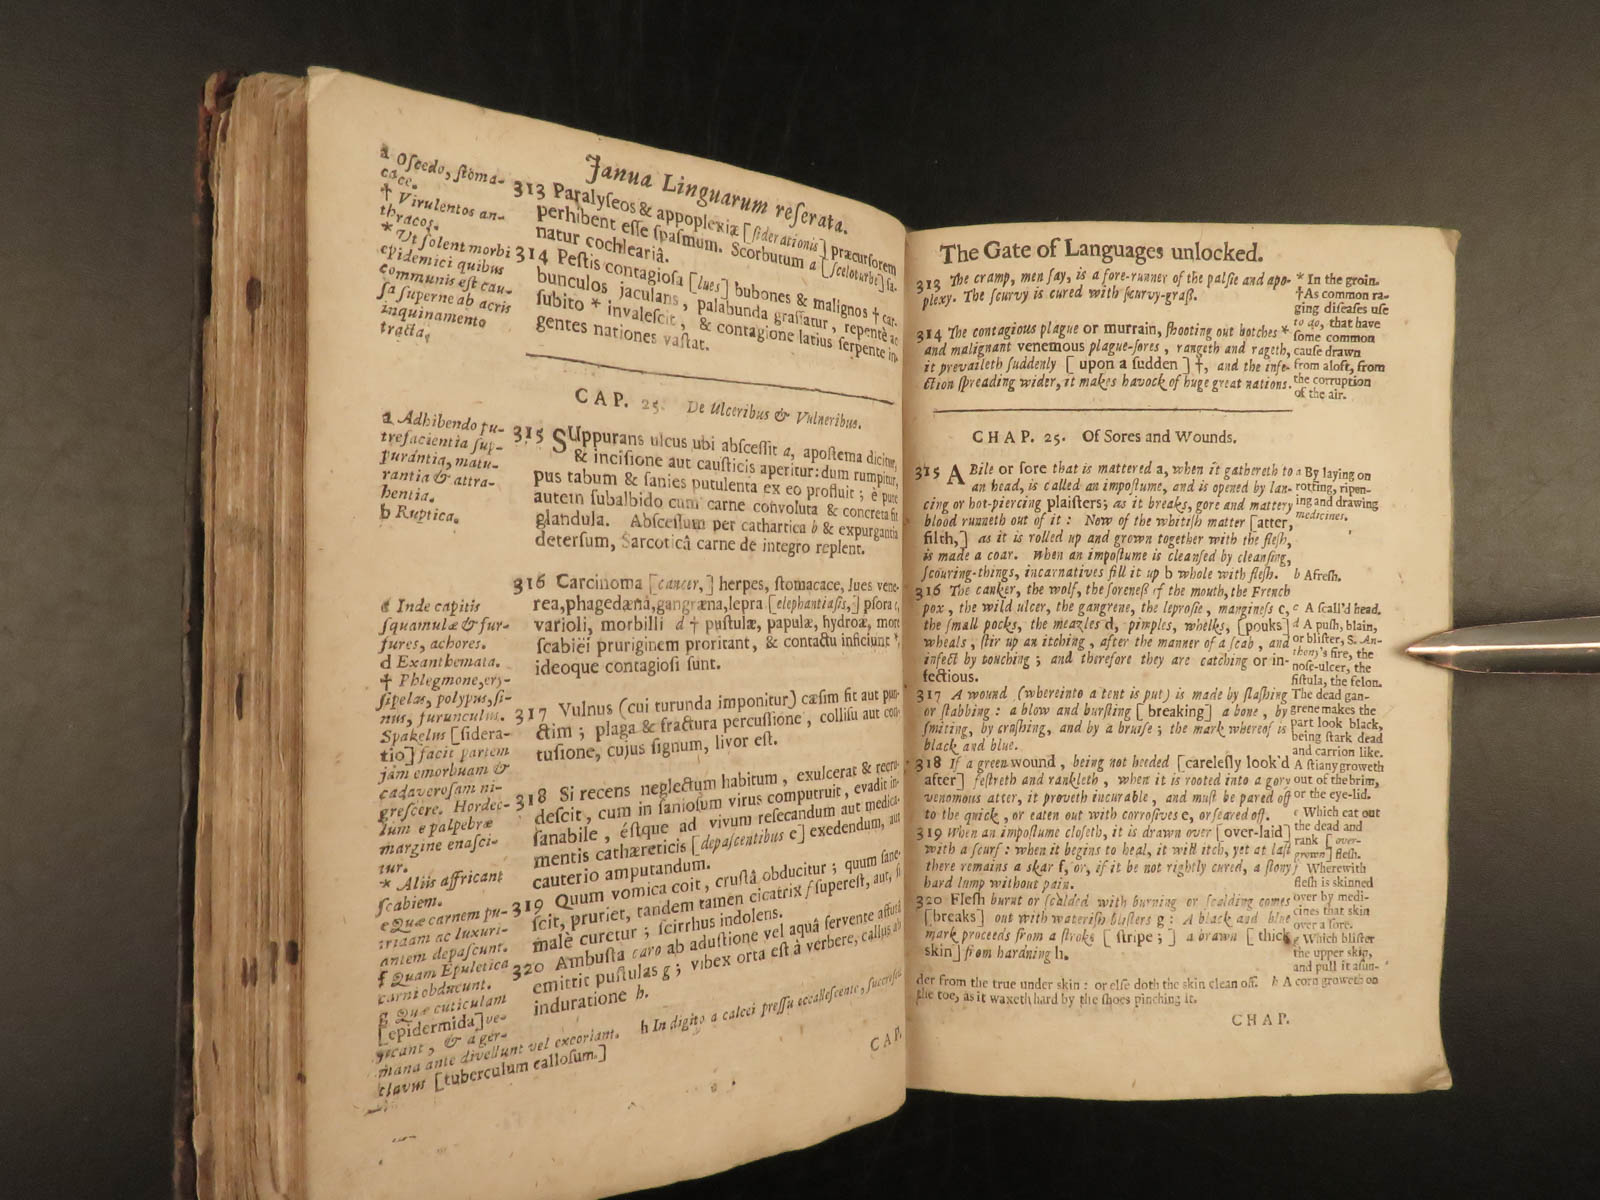 Janua Linguarum reſerata.
a Oſcedo, ſtoma-
cace.
† Virulentos an-
thracos.
* Ut ſolent morbi
epidemici quibus
communis eſt cau-
ſa ſuperne ab acris
inquinamento
tracta.
313 Paralyſeos & appoplexiæ [ſiderationis] præcurſorem
perhibent eſſe ſpaſmum. Scorbutum a [ſceloturbe] ſa-
natur cochleariâ.
314 Peſtis contagioſa [lues] bubones & malignos † car-
bunculos jaculans, palabunda graſſatur, repentè ac
ſubito * invaleſcit, & contagione latius ſerpente in-
gentes nationes vaſtat.
CAP. 25. De Ulceribus & Vulneribus.
a Adhibendo pu-
trefacientia ſup-
purantia, matu-
rantia & attra-
hentia.
b Ruptica.
315 SUppurans ulcus ubi abſceſſit a, apoſtema dicitur,
& inciſione aut cauſticis aperitur: dum rumpitur,
pus tabum & ſanies putulenta ex eo profluit; è pure
autem ſubalbido cum carne convoluta & concreta fit
glandula. Abſceſſum per cathartica b & expurgantia
deterſum, Sarcoticâ carne de integro replent.
c Inde capitis
ſquamulæ & fur-
fures, achores.
d Exanthemata.
† Phlegmone, ery-
ſipelas, polypus, ſi-
nus, furunculus.
Spakelus [ſidera-
tio] facit partem
jam emorbuam &
cadaveroſam ni-
greſcere. Horde-
lum e palpebræ
margine enaſci-
tur.
* Aliis affricant
ſcabiem.
e Quæ carnem pu-
tridam ac luxuri-
antem depaſcunt.
f Quam Epuletica
carni obducunt.
g Quæ cuticulam
[epidermida] ve-
ſicant, & a ger-
mana ante divellunt vel excoriant.
316 Carcinoma [cancer,] herpes, ſtomacace, lues vene-
rea, phagedæna, gangræna, lepra [elephantiaſis,] pſora c,
varioli, morbilli d † puſtulæ, papulæ, hydroæ, more
ſcabiei pruriginem proritant, & contactu inficiunt *,
ideoque contagioſi ſunt.
317 Vulnus (cui turunda imponitur) cæſim fit aut pun-
ctim; plaga & fractura percuſſione, colliſu aut con-
tuſione, cujus ſignum, livor eſt.
318 Si recens neglectum habitum, exulcerat & recru-
deſcit, cum in ſanioſum virus computruit, evadit in-
ſanabile, éſtque ad vivum reſecandum aut medica-
mentis cathæreticis [depaſcentibus e] exedendum, aut
cauterio amputandum.
319 Quum vomica coit, cruſtâ obducitur; quum ſane-
ſcit, pruriet, tandem tamen cicatrix f ſupereſt, aut, ſi
malè curetur; ſcirrhus indolens.
320 Ambuſta caro ab aduſtione vel aquâ fervente affuſâ
emittit puſtulas g; vibex orta eſt à verbere, callus ab
induratione h.
h In digito a calcei preſſu occalleſcente, ſuccreſcit
clavus [tuberculum calloſum.]
CAP.
The Gate of Languages unlocked.
313 The cramp, men ſay, is a fore-runner of the palſie and apo-
plexy. The ſcurvy is cured with ſcurvy-graſs.
314 The contagious plague or murrain, ſhooting out botches *
and malignant venemous plague-ſores, rangeth and rageth,
it prevaileth ſuddenly [upon a ſudden] †, and the infe-
ction ſpreading wider, it makes havock of huge great nations.
* In the groin.
† As common ra-
ging diſeaſes uſe
to do, that have
ſome common
cauſe drawn
from aloft, from
the corruption
of the air.
CHAP. 25. Of Sores and Wounds.
315 A Bile or ſore that is mattered a, when it gathereth to
an head, is called an impoſtume, and is opened by lan-
cing or hot-piercing plaiſters; as it breaks, gore and mattery
blood runneth out of it: Now of the whitiſh matter [atter,
filth,] as it is rolled up and grown together with the fleſh,
is made a coar. When an impoſtume is cleanſed by cleanſing,
ſcouring-things, incarnatives fill it up b whole with fleſh.
316 The canker, the wolf, the ſoreneſs of the mouth, the French
pox, the wild ulcer, the gangrene, the leproſie, mangineſs c,
the ſmall pocks, the meazles d, pimples, whelks, [pouks]
wheals, ſtir up an itching, after the manner of a ſcab, and
infect by touching; and therefore they are catching or in-
fectious.
317 A wound (whereinto a tent is put) is made by ſlaſhing
or ſtabbing: a blow and burſting [breaking] a bone, by
ſmiting, by craſhing, and by a bruiſe; the mark whereof is
black and blue.
318 If a green wound, being not heeded [careleſly look'd
after] feſtreth and rankleth, when it is rooted into a gory
venomous atter, it proveth incurable, and muſt be pared off
to the quick, or eaten out with corroſives e, or ſeared off.
319 When an impoſtume cloſeth, it is drawn over [over-laid]
with a ſcurf: when it begins to heal, it will itch, yet at laſt
there remains a skar f, or, if it be not rightly cured, a ſtony
hard lump without pain.
320 Fleſh burnt or ſcalded with burning or ſcalding comes
[breaks] out with wateriſh bliſters g: A black and blue
mark proceeds from a ſtroke [ſtripe;] a brawn [thick
skin] from hardning h.
a By laying on
rotting, ripen-
ing and drawing
medicines.
b Afreſh.
c A ſcall'd head.
d A puſh, blain,
or bliſter, S. An-
thony's fire, the
noſe-ulcer, the
fiſtula, the felon.
The dead gan-
grene makes the
part look black,
being ſtark dead
and carrion like.
A ſtiany groweth
out of the brim,
or the eye-lid.
e Which eat out
the dead and
rank [over-
grown] fleſh.
f Wherewith
fleſh is skinned
over by medi-
cines that skin
over a ſore.
g Which bliſter
the upper skin,
and pull it aſun-
der from the true under skin: or elſe doth the skin clean off.
h A corn groweth on
the toe, as it waxeth hard by the ſhoes pinching it.
CHAP.